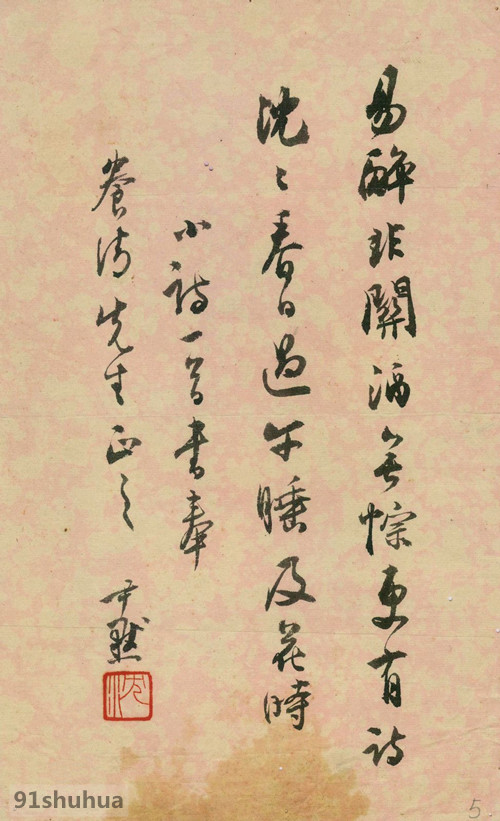 易醉非關酒無悰更有詩
沈〻春日過午睡及花時
小詩一首書奉
養清先生正之
尹默
沈
91shuhua
5